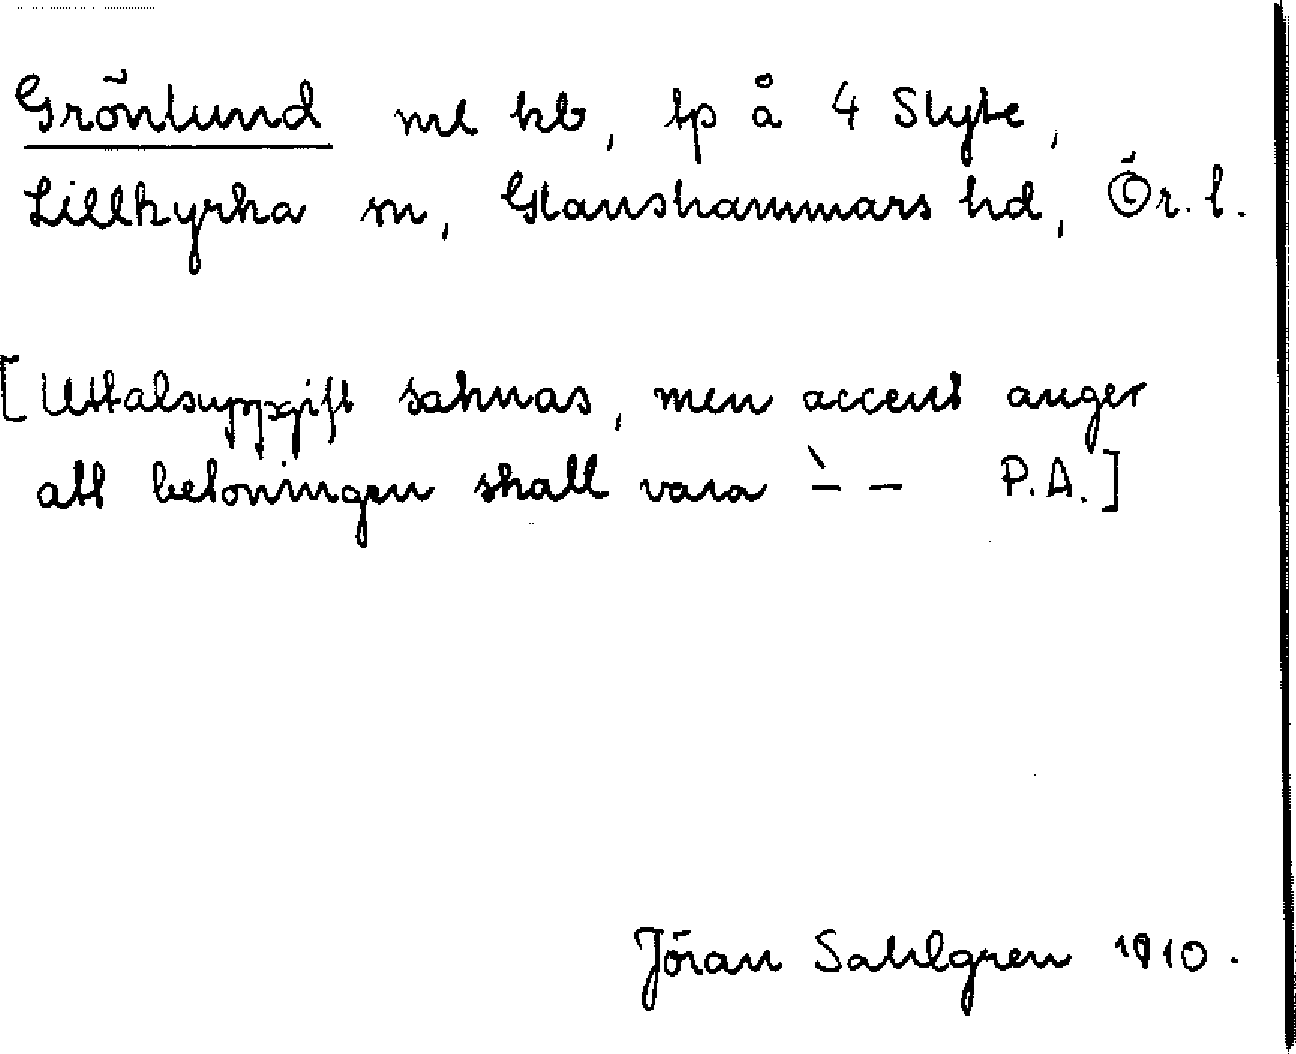 Grönlund ml kb, tp å 4 Slyte,
Lillkyrka sn, Glanshammars hd, Ör. l.
[Uttalsuppgift saknas, men accent anger
att betoningen skall vara ̀– – P.A.]
Jöran Sahlgren 1910.